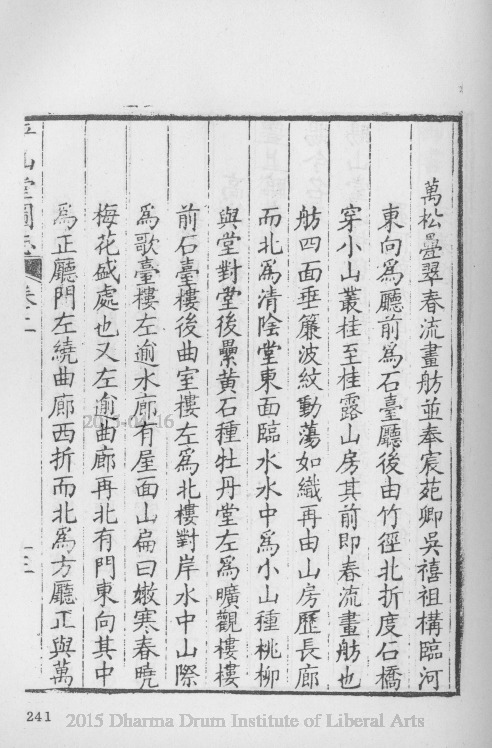 萬松疊翠春流畫舫並奉宸苑卿吳禧祖構臨河
東向為廳前為石臺廳後由竹徑北折度石橋
穿小山叢桂至桂露山房其前即春流畫舫也
舫四面垂簾波紋動蕩如織再由山房歷長廊
而北為清陰堂東面臨水水中為小山種桃柳
與堂對堂後纍黃石種牡丹堂左為曠觀樓樓
前石臺樓後曲室樓左為北樓對岸水中山際
為歌臺樓左逾水廊有屋面山扁曰嫩寒春曉
梅花盛處也又左逾曲廊再北有門東向其中
為正廳門左繞曲廊西折而北為方廳正與萬
平山堂圖志 卷二
十三
2015-04-16
241
2015 Dharma Drum Institute of Liberal Arts